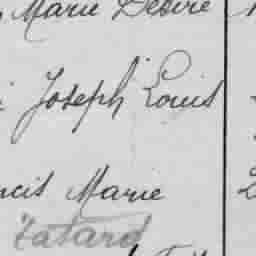 Marie Désiré
Joseph Louis
ncis Marie
Tatard